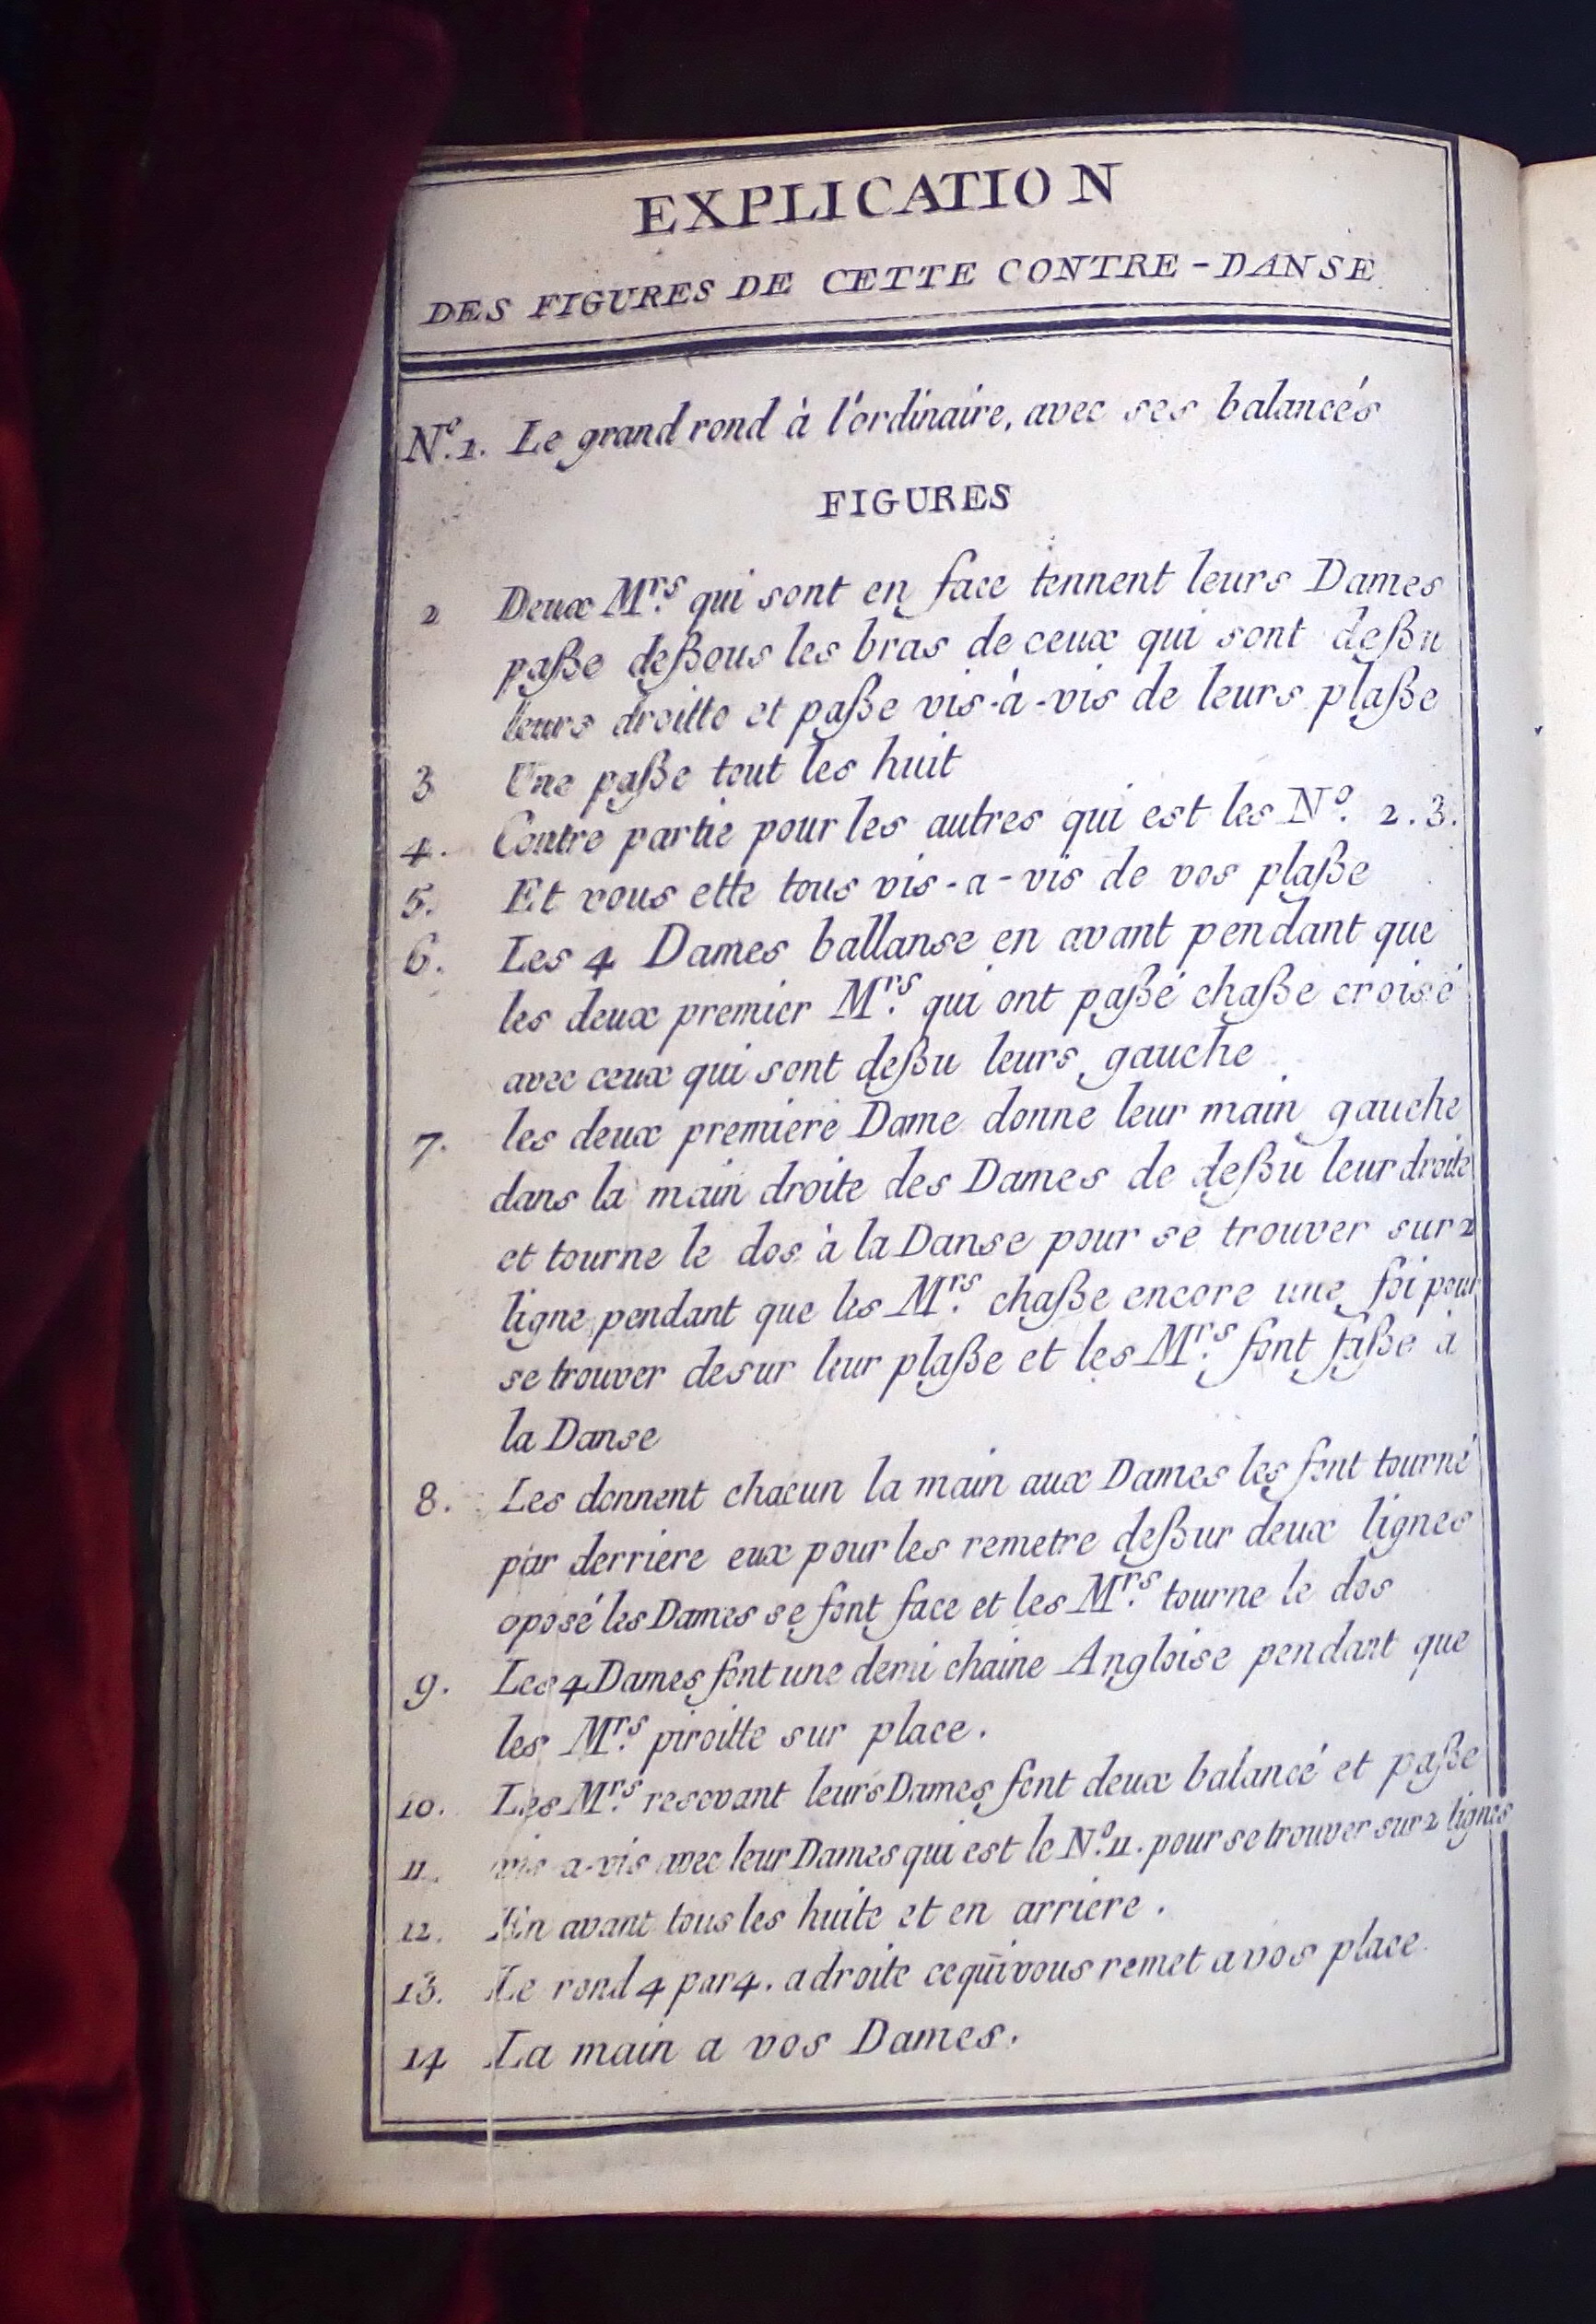 EXPLICATION
DES FIGURES DE CETTE CONTRE-DANSE
N.º 1. Le grand rond à l'ordinaire, avec ses balancés
FIGURES
2 Deux M.rs qui sont en face tennent leurs Dames
paße deßous les bras de ceux qui sont deßu
leurs droitte et paße vis-à-vis de leurs plaße
3 Une paße tout les huit
4. Contre partie pour les autres qui est les Nº. 2.3.
5. Et vous ette tous vis-a-vis de vos plaße
6. Les 4 Dames ballanse en avant pendant que
les deux premier M.rs qui ont paßé chaße croisé
avec ceux qui sont deßu leurs gauche
7. les deux premiere Dame donne leur main gauche
dans la main droite des Dames de deßu leur droite
et tourne le dos à la Danse pour se trouver sur 2
ligne pendant que les M.rs chaße encore une foi pour
se trouver desur leur plaße et les M.rs font faße à
la Danse
8. Les donnent chacun la main aux Dames les font tourné
par derriere eux pour les remetre deßur deux lignes
oposé les Dames se font face et les M.rs tourne le dos
9. Les 4 Dames font une demi chaine Angloise pendant que
les M.rs piroitte sur place.
10. Les M.rs resevant leurs Dames font deux balancé et paße
11. vis-a-vis avec leur Dames qui est le Nº. 11. pour se trouver sur 2 lignes
12. En avant tous les huite et en arriere.
13. Le rond 4 par 4. a droite ce qui vous remet a vos place
14 La main a vos Dames.